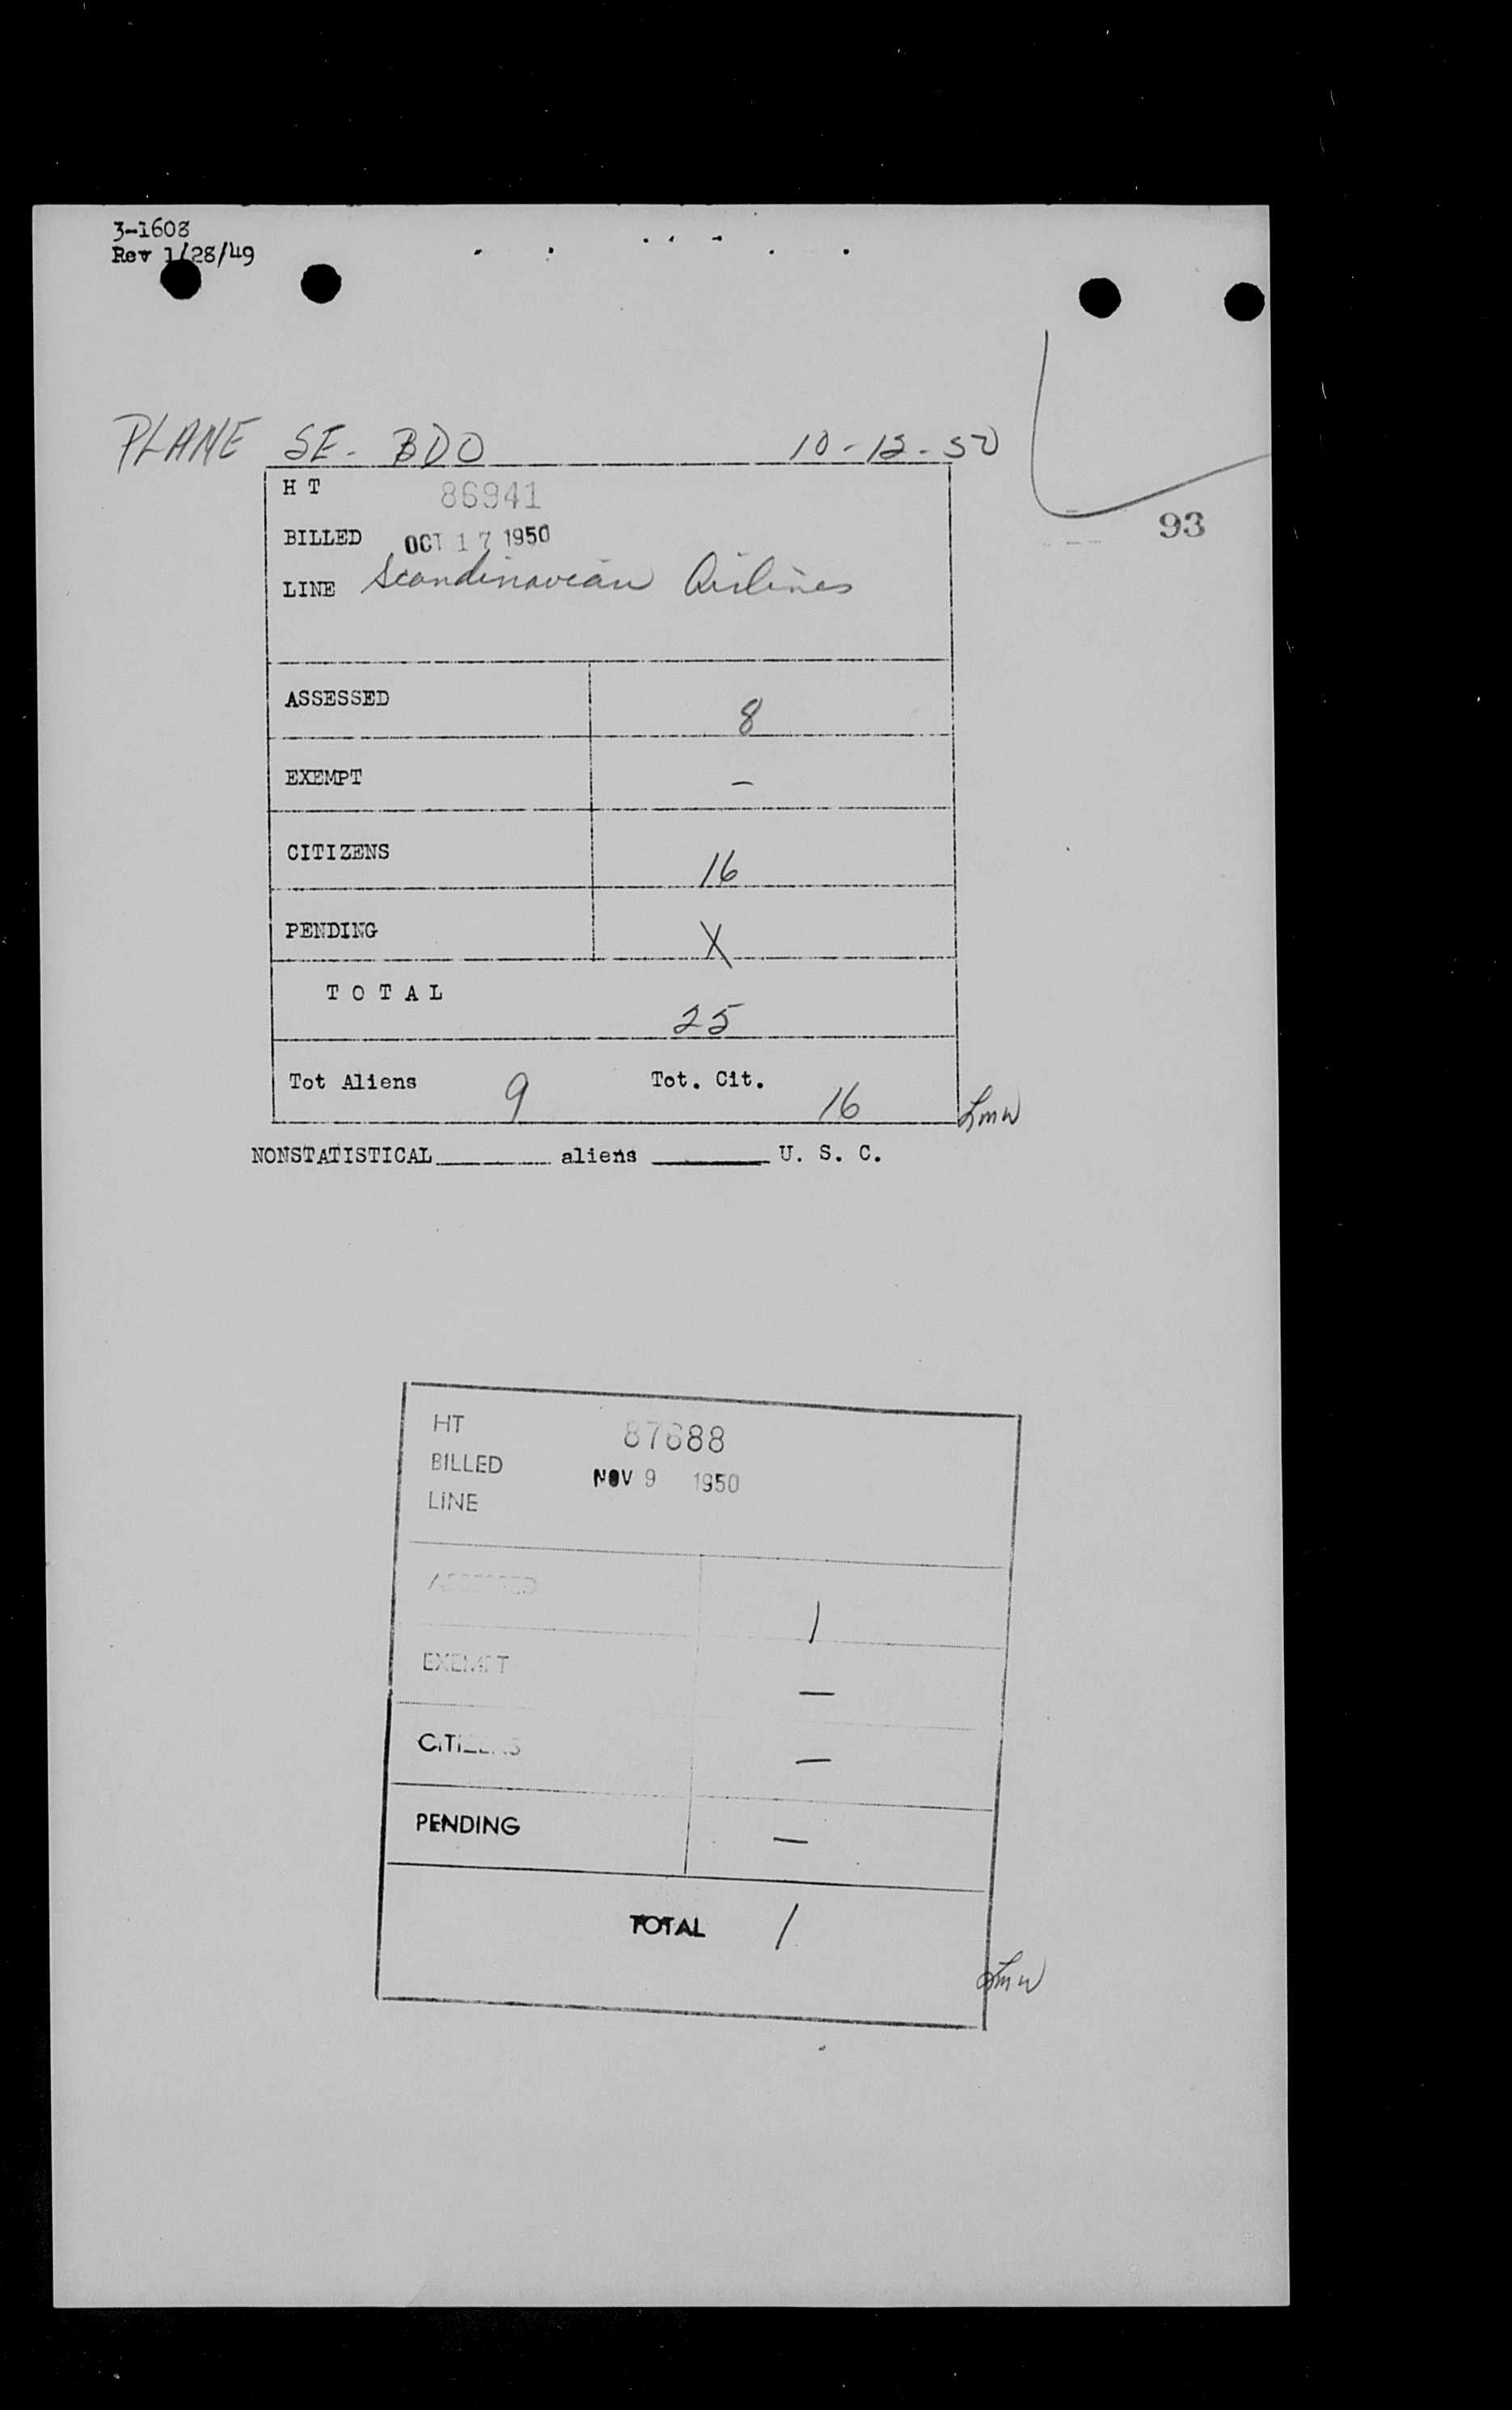 3-1608
Rev 1/28/49
PLANE SE- BDO 10-12-50
H T 86941
93
BILLED OCT 17 1950
LINE Scandinavian Airlines
ASSESSED 8
EXEMPT —
CITIZENS 16
PENDING X
TOTAL 25
Tot Aliens 9 Tot. Cit. 16
Lmw
NONSTATISTICAL aliens U. S. C.
HT 87688
BILLED NOV 9 1950
LINE
ASSESSED 1
EXEMPT —
CITIZENS —
PENDING —
TOTAL 1
Lmw